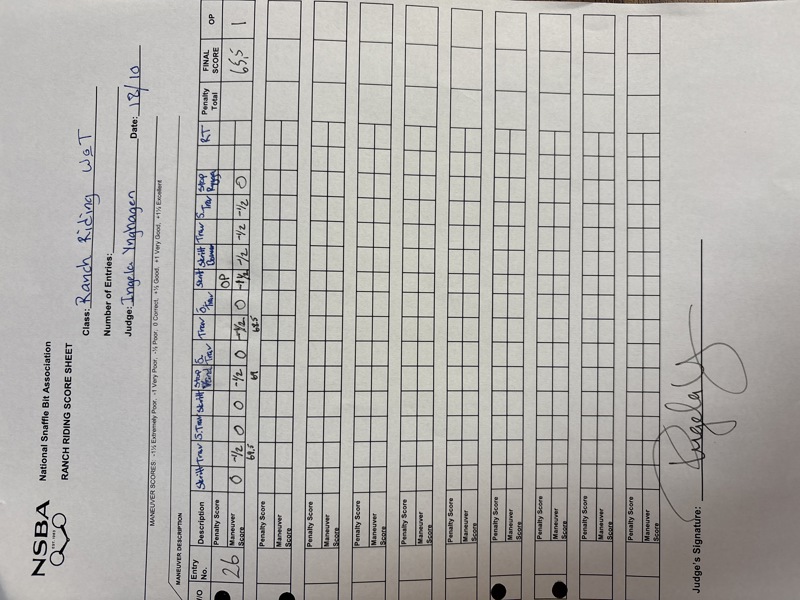 NSBA
EST. 1983
National Snaffle Bit Association
RANCH RIDING SCORE SHEET
Class: Ranch Riding WoT
Number of Entries:
Judge: Ingela Ynghagen Date: 18/10
MANEUVER SCORES: -1½ Extremely Poor, -1 Very Poor, -½ Poor, 0 Correct, +½ Good, +1 Very Good, +1½ Excellent
MANEUVER DESCRIPTION
W/O Entry No. Description Skritt Trav S.Trav Skritt Stop S. Trav Trav Skritt Trav S.Trav Stop Rygga RT Penalty Total FINAL SCORE OP
Penalty Score OP
26 Maneuver Score 0 -1/2 0 0 -1/2 0 -1/2 0 -1 1/2 -1/2 -1/2 -1/2 0 65,5 1
69,5 69 68.5
Penalty Score
Maneuver Score
Penalty Score
Maneuver Score
Penalty Score
Maneuver Score
Penalty Score
Maneuver Score
Penalty Score
Maneuver Score
Penalty Score
Maneuver Score
Penalty Score
Maneuver Score
Penalty Score
Maneuver Score
Penalty Score
Maneuver Score
Judge's Signature: